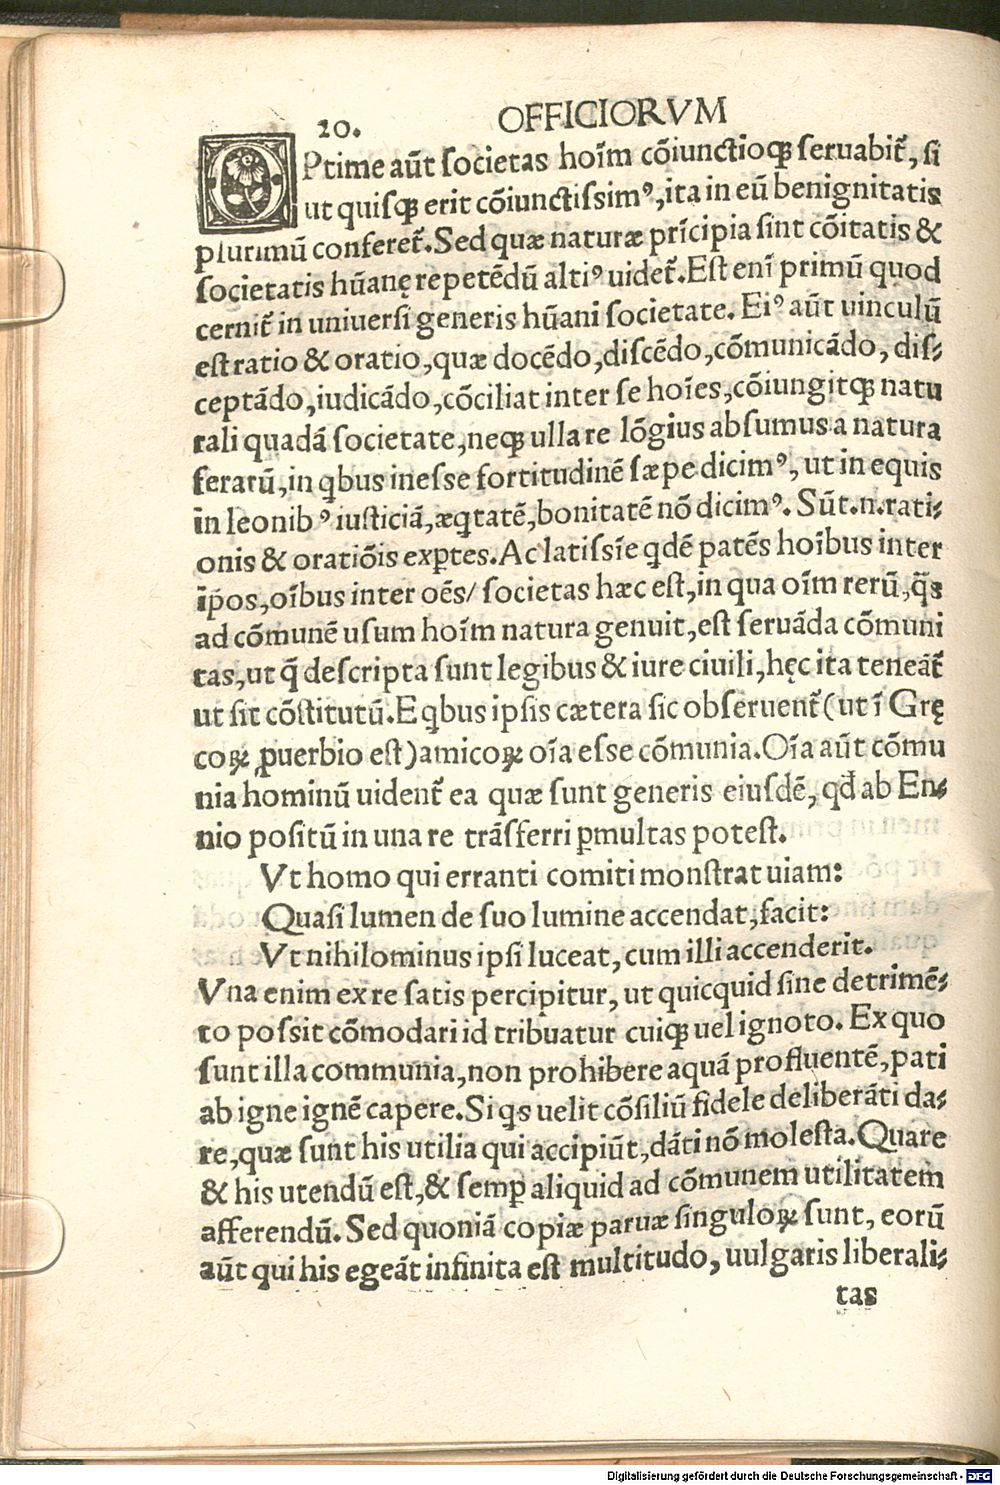 OFFICIORVM
20.
OPtime aūt societas hoīm cōiunctioq; seruabit᷑, si
ut quisq; erit cōiunctissimꝰ, ita in eū benignitatis
plurimū conferet᷑. Sed quæ naturæ prīcipia sint cōitatis &
societatis hūanę repetēdū altiꝰ uidet᷑. Est enī primū quod
cernit᷑ in uniuersi generis hūani societate. Eiꝰ aūt uinculū
est ratio & oratio, quæ docēdo, discēdo, cōmunicādo, dis⸗
ceptādo, iudicādo, cōciliat inter se hoīes, cōiungitq; natu
rali quadā societate, neq; ulla re lōgius absumus a natura
ferarū, in qbus inesse fortitudinē sæpe dicimꝰ, ut in equis
in leonibꝰ iusticiā, æqtatē, bonitatē nō dicimꝰ. Sūt.n.rati⸗
onis & oratiōis exꝑtes. Ac latissīe qdē patēs hoībus inter
ip̄os, oībus inter oēs/ societas hæc est, in qua oīm rerū, q̄s
ad cōmunē usum hoīm natura genuit, est seruāda cōmuni
tas, ut q̄ descripta sunt legibus & iure ciuili, hęc ita teneāt᷑
ut sit cōstitutū. E qbus ipsis cætera sic obseruent᷑ (ut ī Grę
coꝝ ꝓuerbio est) amicoꝝ oīa esse cōmunia. Oīa aūt cōmu
nia hominū uident᷑ ea quæ sunt generis eiusdē, qđ ab En⸗
nio positū in una re trāsferri ꝑmultas potest.
Vt homo qui erranti comiti monstrat uiam:
Quasi lumen de suo lumine accendat, facit:
Vt nihilominus ipsi luceat, cum illi accenderit.
Vna enim ex re satis percipitur, ut quicquid sine detrimē⸗
to possit cōmodari id tribuatur cuiq; uel ignoto. Ex quo
sunt illa communia, non prohibere aquā profluentē, pati
ab igne ignē capere. Si qs uelit cōsiliū fidele deliberāti da⸗
re, quæ sunt his utilia qui accipiūt, dāti nō molesta. Quare
& his utendū est, & semꝑ aliquid ad cōmunem utilitatem
afferendū. Sed quoniā copiæ paruæ singuloꝝ sunt, eorū
aūt qui his egeāt infinita est multitudo, uulgaris liberali⸗
tas
Digitalisierung gefördert durch die Deutsche Forschungsgemeinschaft - DFG